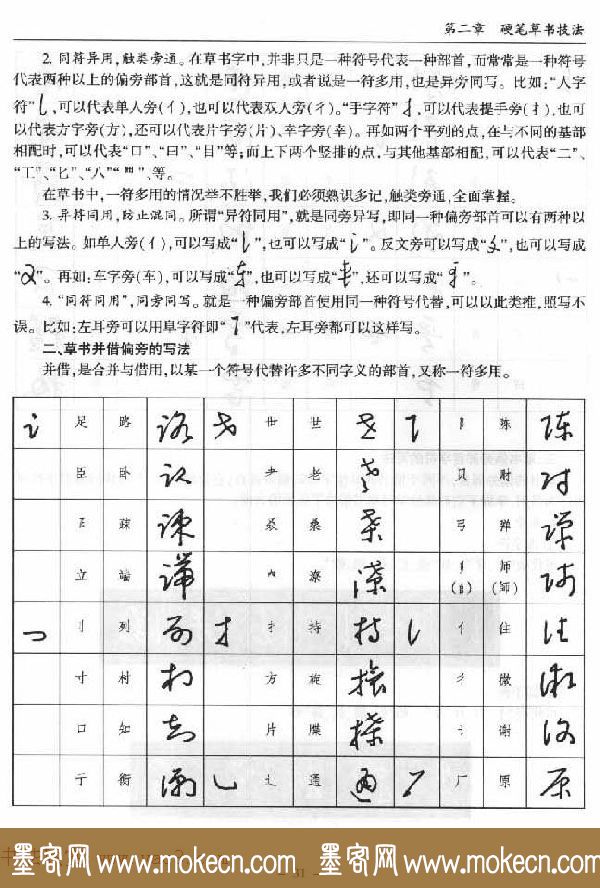 第二章　硬笔草书技法
2. 同符异用，触类旁通。在草书字中，并非只是一种符号代表一种部首，而常常是一种符号
代表两种以上的偏旁部首，这就是同符异用，或者说是一符多用，也是异旁同写。比如：“人字
符”，可以代表单人旁（亻），也可以代表双人旁（彳）。“手字符”，可以代表提手旁（扌），也可
以代表方字旁（方），还可以代表片字旁（片）、幸字旁（幸）。再如两个平列的点，在与不同的基部
相配时，可以代表“口”、“曰”、“目”等；而上下两个竖排的点，与其他基部相配，可以代表“二”、
“工”、“匕”、“八”“”、等。
在草书中，一符多用的情况举不胜举，我们必须熟识多记，触类旁通，全面掌握。
3. 异符同用，防止混同。所谓“异符同用”，就是同旁异写，即同一种偏旁部首可以有两种以
上的写法。如单人旁（亻），可以写成“”，也可以写成“”。反文旁可以写成“”，也可以写成
“”。再如：车字旁（车），可以写成“”，也可以写成“”，还可以写成“”。
4. “同符同用”，同旁同写。就是一种偏旁部首使用同一种符号代替，可以以此类推，照写不
误。比如：左耳旁可以用阜字符即“”代表，左耳旁都可以这样写。
二、草书并借偏旁的写法
并借，是合并与借用，以某一个符号代替许多不同字义的部首，又称一符多用。
讠 足 路 路 世 世 阝 陈 陈
臣 卧 卧 老 老 贝 财 财
疏 疏 桑 桑 弓 弹 弹
立 端 端 潦 师 (師)
刂 列 列 扌 扌 持 持 亻 亻 住 住
寸 村 村 方 旋 旋 彳 微 微
口 知 知 片 牒 牒 讠 谢 谢
亍 衡 辶 通 通 厂 原 原
墨客网 www.mokecn.com 墨客网 www.mokecn.com